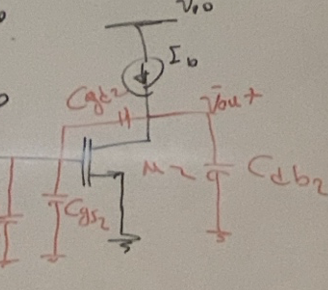 I_b
Cgd2
Vout
M2
Cdb2
Cgs2